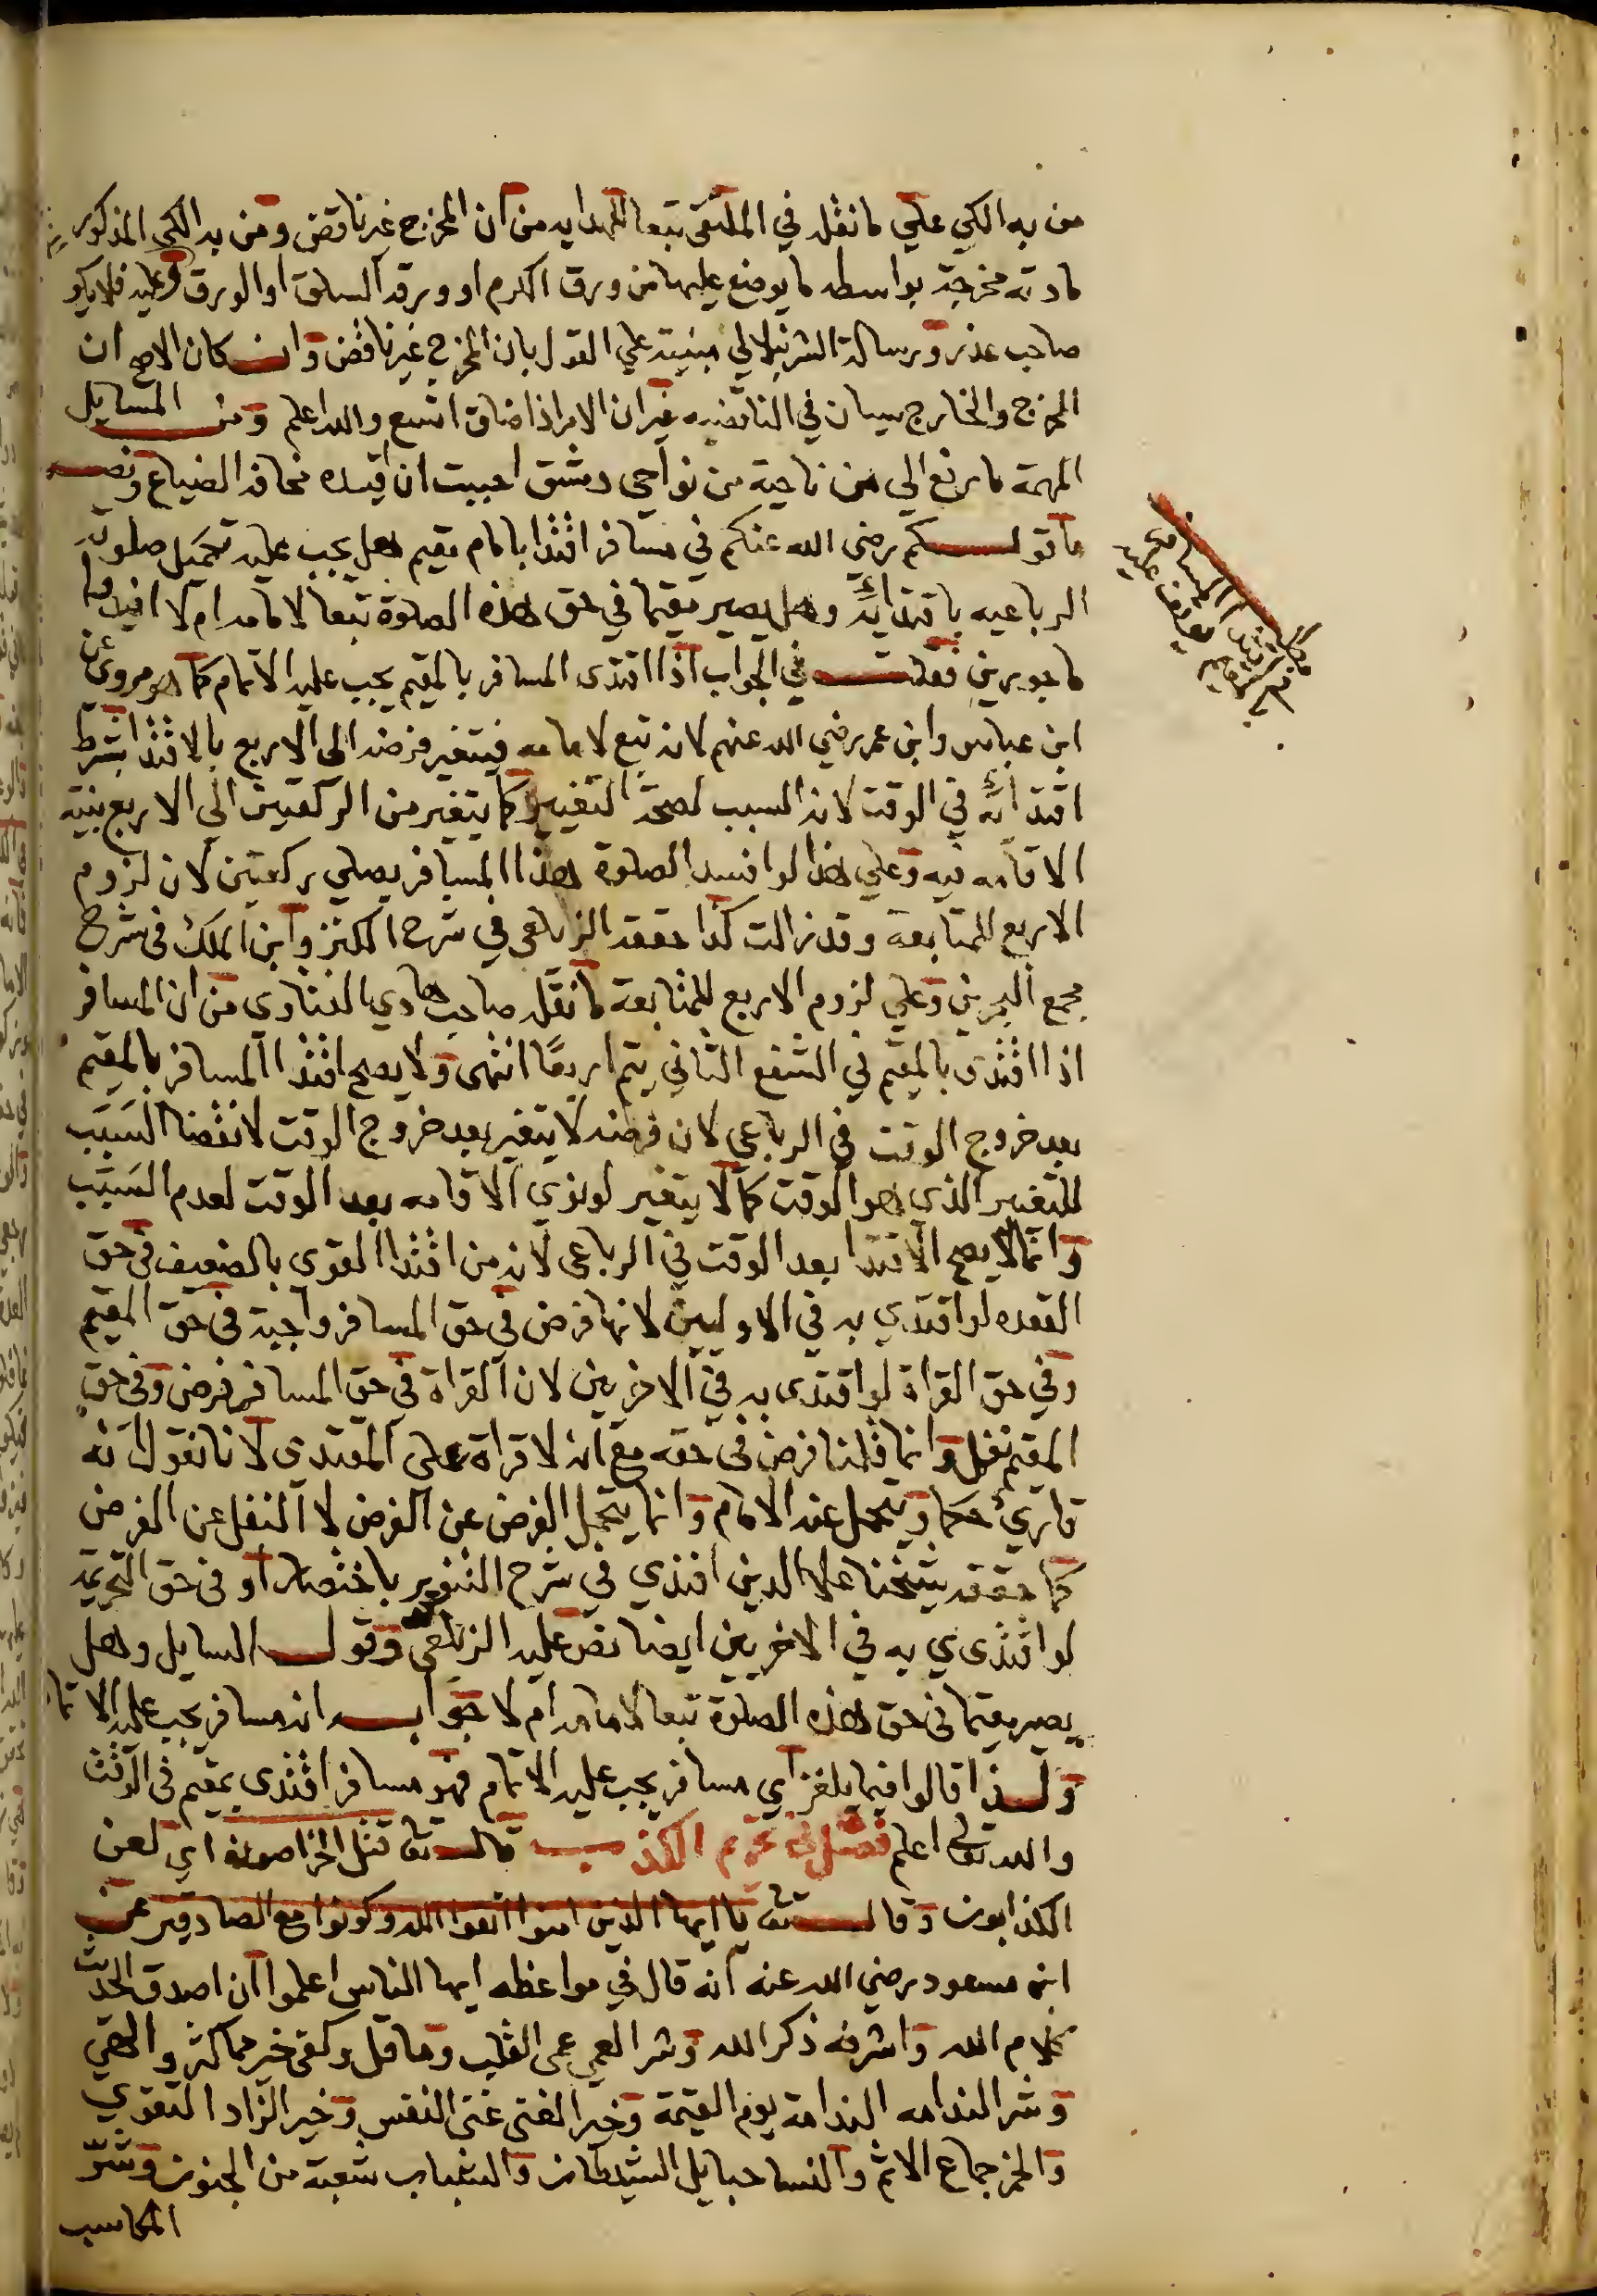 من به الكي علي ما نقله في الملتقى تبعا للهدايه من ان المخرج غير ناقض ومن به الكي المذكور
مادته مخرجة بواسطه ما يوضع عليها من ورق الكرم او ورقه السلق او الورق وعليه فلا يكو
صاحب عذر ورسالة الشرنبلالي مبنية علي القول بان المخرج غير ناقض وان كان الاصح ان
المخرج والخارج سيان في الناقضيه غير ان الامر اذا ضاق اتسع والله اعلم ومن المسايل
المهمة ما رفع الي من ناحية من نواحي دمشق احببت ان اقيده مخافة الضياع ونصه
ما قولكم رضي الله عنكم في مسافر اقتدا بامام مقيم هل يجب عليه تكميل صلوته
الرباعيه باقتدائه وهل يصير مقيما في حق هذه الصلوة تبعا لامامه ام لا افيدوا
ماجورين فقلت في الجواب اذا اقتدى المسافر بالمقيم يجب عليه الاتمام كما هو مروي عن
ابن عباس وابن عمر رضي الله عنهم لانه تبع لامامه فيتغير فرضه الى الاربع بالاقتدا بشرط
اقتدائه في الوقت لانه السبب لصحة التغيير كما يتغير من الركعتين الى الاربع بنية
الاقامه فيه وعلي هذا لو افسد الصلوة هذا المسافر يصلي ركعتين لان لزوم
الاربع للمتابعة وقد زالت كذا حققه الزيلعي في شرح الكنز وابن الملك في شرح
مجمع البحرين وعلي لزوم الاربع للمتابعة ما نقله صاحب هادي الفتاوى من ان المسافر
اذا اقتدى بالمقيم في الشفع الثاني يتم اربعا انتهى ولا يصح اقتدا المسافر بالمقيم
بعد خروج الوقت في الرباعي لان فرضه لا يتغير بعد خروج الوقت لانقضا السبب
للتغير الذي هو الوقت كما لا يتغير لو نوى الاقامه بعد الوقت لعدم السبب
وانما لا يصح الاقتدا بعد الوقت في الرباعى لانه من اقتدا القوى بالضعيف في حق
القعده لو اقتدي به في الاوليين لانها فرض في حق المسافر واجبة في حق المقيم
وفي حق القراة لو اقتدى به في الاخريين لان القراة في حق المسافر فرض وفي حق
المقيم نفل وانما قلنا فرض في حقه مع انه لا قراة على المقتدى لانا نقول انه
قارئ حكما ويتحمل عنه الامام وانما يتحمل الفرض عن الفرض لا النفل عن الفرض
كما حققه شيخنا علا الدين افندي في شرح التنوير باختصار او في حق التحريمة
لو اقتدى ي به في الاخريين ايضا نص عليه الزيلعي وقول السايل وهل
يصير مقيما في حق هذه الصلوة تبعا لامامه ام لا جوابه انه مسافر يجب عليه الاتما
ولذا قالوا فيما يلغز اي مسافر يجب عليه الاتمام فهو مسافر اقتدى بمقيم في الوقت
والله تعالى اعلم فصل في تحريم الكذب قال تعالى قتل الخراصون اي لعن
الكذابون وقال تعالى يا ايها الذين امنوا اتقوا الله وكونوا مع الصادقين عن
ابن مسعود رضي الله عنه انه قال في مواعظه ايها الناس اعلموا ان اصدق الحديث
كلام الله واشرفه ذكر الله وشر العمي عمى القلب وما قل وكفى خير مما كثر والهي
وشر الندامه الندامة يوم القيمة وخير الغنى غنى النفس وخير الزاد التقوي
والخمر جماع الاثم والنسا حبايل الشيطان والشباب شعبة من الجنون وشر
المكاسب